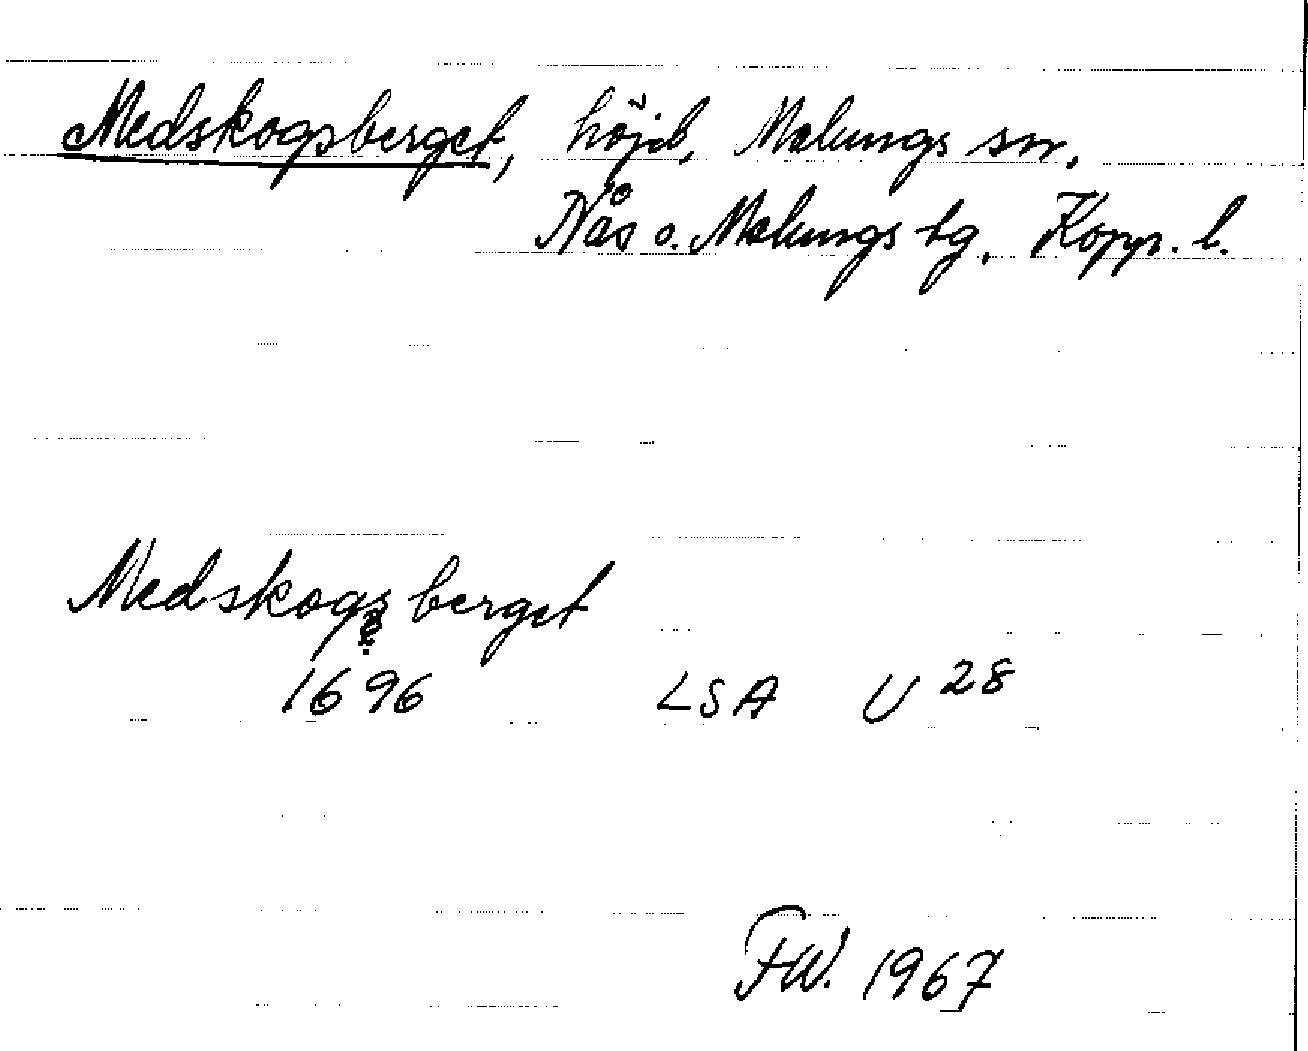 Medskogsberget, höjd, Malungs sn,
Nås o. Malungs tg, Kopp. l.
Medskogsberget
?
1696 LSA U 28
FW. 1967